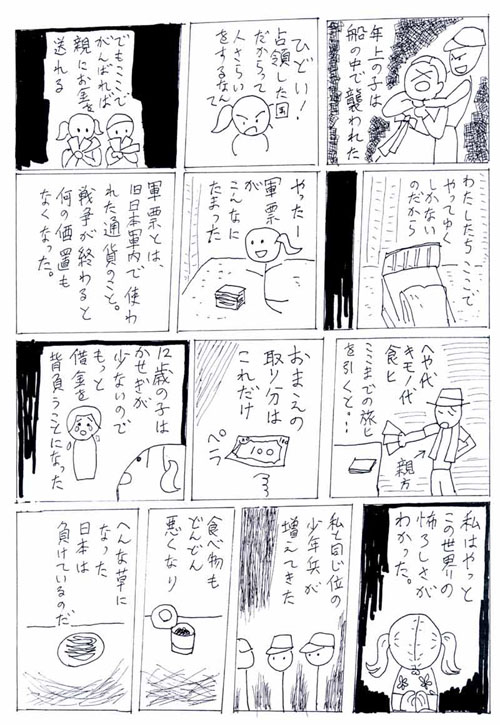 年上の子は
船の中で襲われた
ひどい!
占領した国
だからって
人さらい
をするなんて
でもここで
がんばれば
親にお金を
送れる
わたしたちここで
やってゆく
しかない
のだから
やったー
軍票が
こんなに
たまった
軍票とは、
旧日本軍内で使わ
れた通貨のこと。
戦争が終わると
何の価置も
なくなった。
へや代
キモノ代
食ヒ
ここまでの旅ヒ
を引くと…
親方
おまえの
取り分は
これだけ
ペラ
100
12歳の子は
かせぎが
少ないので
もっと
借金を
背負うことになった
私はやっと
この世界の
怖ろしさが
わかった。
私と同じ位の
少年兵が
増えてきた
食べ物も
どんどん
悪くなり
へんな草に
なった
日本は
負けているのだ